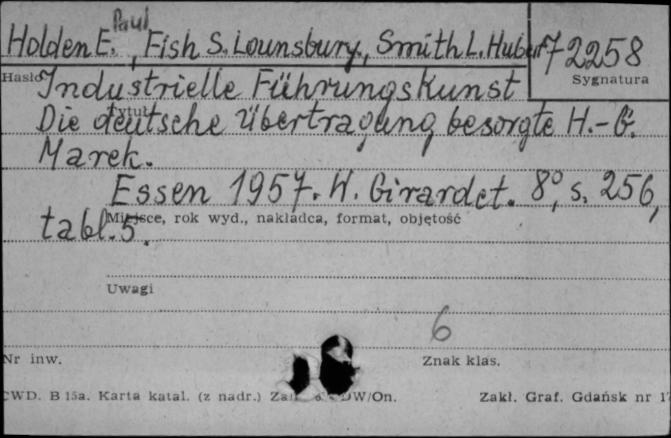 Paul
Holden E., Fish S. Lounsbury, Smith L. Hubert
72258
Hasło
Sygnatura
Industrielle Führungskunst
Tytuł
Die deutsche Übertragung besorgte H.-G.
Marek.
Essen 1957. W. Girardet. 8°, s. 256,
Miejsce, rok wyd., nakładca, format, objętość
tabl. 5.
Uwagi
6
Nr inw.
Znak klas.
CWD. B 15a. Karta katal. (z nadr.) DW/On.
Zakł. Graf. Gdańsk nr